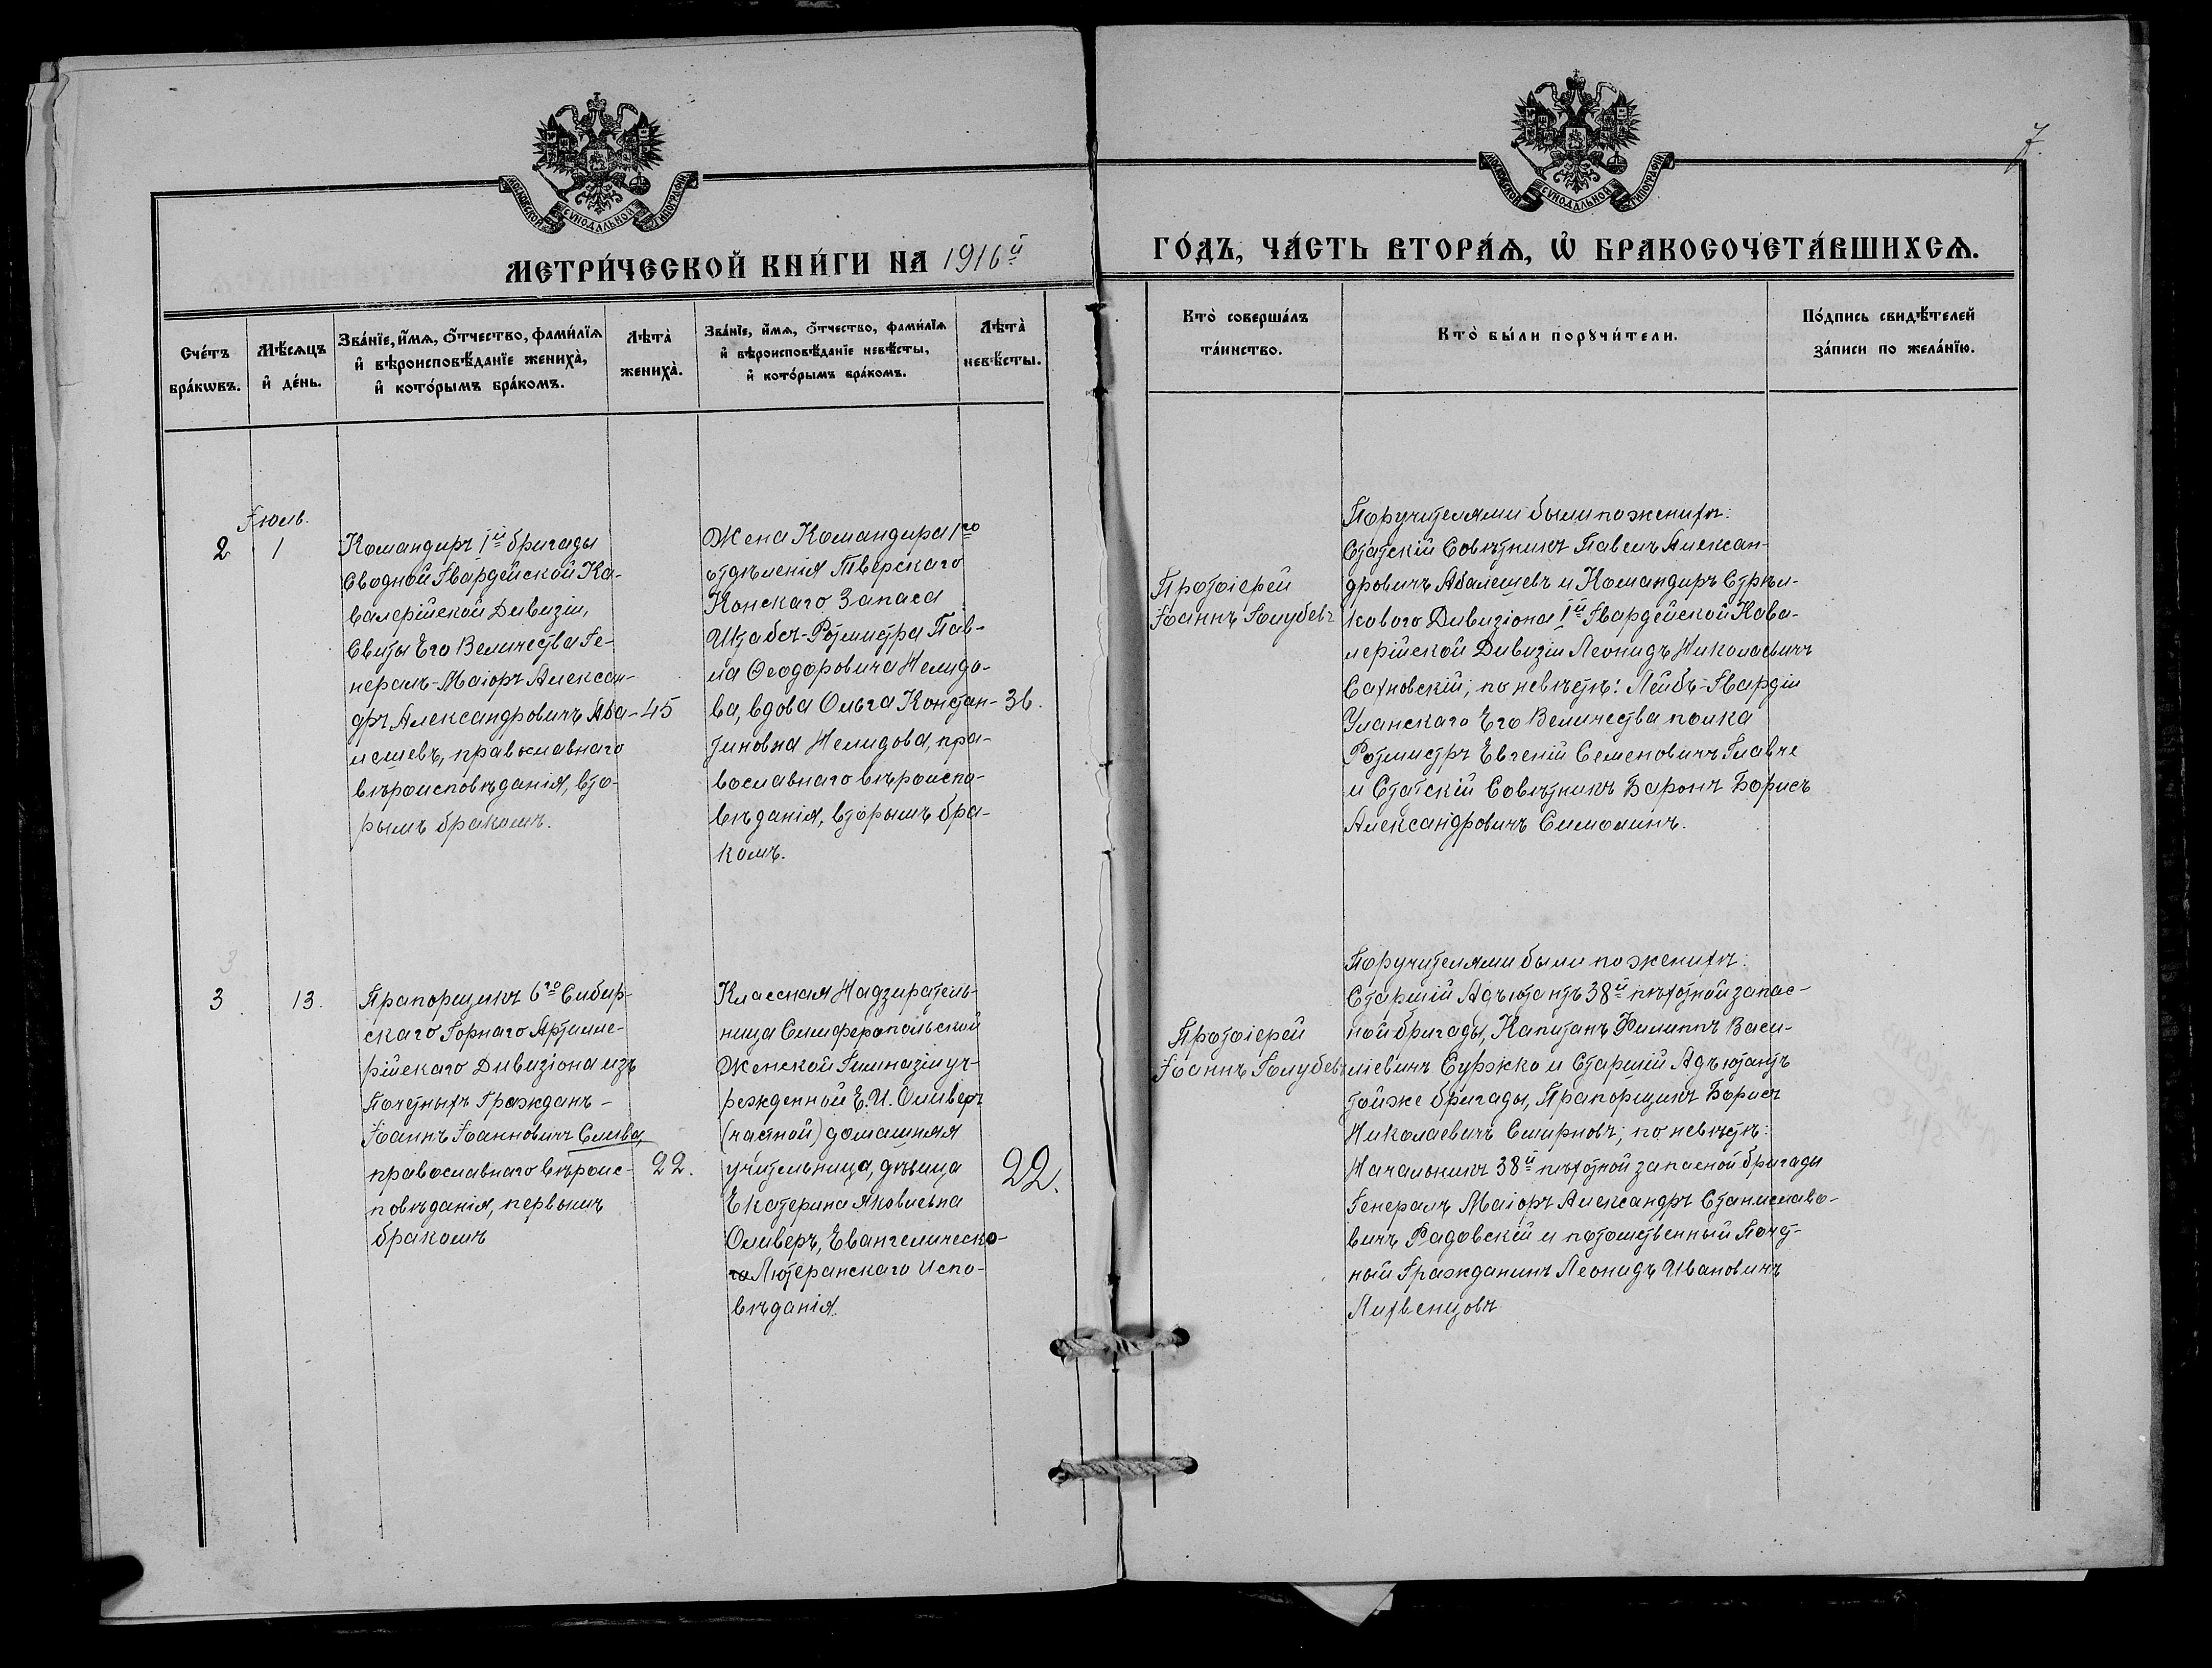 7.
МОСКОВСКОЙ СѴНОДАЛЬНОЙ ТИПОГРАФІИ
МОСКОВСКОЙ СѴНОДАЛЬНОЙ ТИПОГРАФІИ
МЕТРИ́ЧЕСКОЙ КНИ́ГИ НА 1916й
ГО́ДЪ, ЧА́СТЬ ВТОРА́Ѧ, Ѽ БРАКОСОЧЕТА́ВШИХСѦ.
Сче́тъ
бра́кωвъ.
Мѣ́сѧцъ
и҆ де́нь.
Зва́нїе, и҆́мѧ, ѻ҆́тчество, фами́лїѧ
и҆ вѣроисповѣ́данїе жениха̀,
и҆ кото́рымъ бра́комъ.
Лѣта̀
жениха̀.
Зва́нїе, и҆́мѧ, ѻ҆́тчество, фами́лїѧ
и҆ вѣроисповѣ́данїе невѣ́сты,
и҆ кото́рымъ бра́комъ.
Лѣта̀
невѣ́сты.
Кто̀ соверша́лъ
та́инство.
Кто̀ бы́ли порꙋчи́тели.
По́дпись свидѣ́телей
за́писи по жела́нїю.
Іюль.
2
1
Командиръ 1й бригады
Сводной Гвардейской Ка-
валерійской Дивизіи,
Свиты Его Величества Ге-
нералъ-Маіоръ Алексан-
дръ Александровичъ Аба-
лешевъ, православнаго
вѣроисповѣданія, вто-
рымъ бракомъ.
45
Жена Командира 1го
отдѣленія Тверскаго
Конскаго Запаса
Штабсъ-Ротмистра Пав-
ла Ѳеодоровича Нелидо-
ва, вдова Ольга Констан-
тиновна Нелидова, пра-
вославнаго вѣроиспо-
вѣданія, вторымъ бра-
комъ.
36.
Протоіерей
Іоаннъ Голубевъ
Поручителями были по женихѣ:
Статскій Совѣтникъ Павелъ Алексан-
дровичъ Абалешевъ и Командиръ Стрѣл-
коваго Дивизіона 1й Гвардейской Кава-
лерійской Дивизіи Леонидъ Николаевичъ
Сахновскій; по невѣстѣ: Лейбъ-Гвардіи
Уланскаго Его Величества полка
Ротмистръ Евгеній Семеновичъ Главче
и Статскій Совѣтникъ Баронъ Борисъ
Александровичъ Симолинъ.
3
3
13.
Прапорщикъ 6го Сибир-
скаго Горнаго Артилле-
рійскаго Дивизіона изъ
Почетныхъ Гражданъ-
Іоаннъ Іоанновичъ Слива,
православнаго вѣроис-
повѣданія, первымъ
бракомъ
22.
Классная Надзиратель-
ница Симферопольской
Женской Гимназіи уч-
режденной Е. И. Оливеръ
(частной) домашняя
учительница, дѣвица
Екатерина Яковлевна
Оливеръ, Евангелическо-
го Лютеранскаго испо-
вѣданія.
22.
Протоіерей
Іоаннъ Голубевъ
Поручителями были по женихѣ:
Старшій Адъютантъ 38й пѣхотной запас-
ной бригады, Капитанъ Филиппъ Васи-
ліевичъ Суржко и Старшій Адъютантъ
тойже бригады, Прапорщикъ Борисъ
Николаевичъ Смирновъ; по невѣстѣ:
Начальникъ 38й пѣхотной запасной бригады
Генералъ Маіоръ Александръ Станиславо-
вичъ Радовскій и потомственный Почет-
ный Гражданинъ Леонидъ Ивановичъ